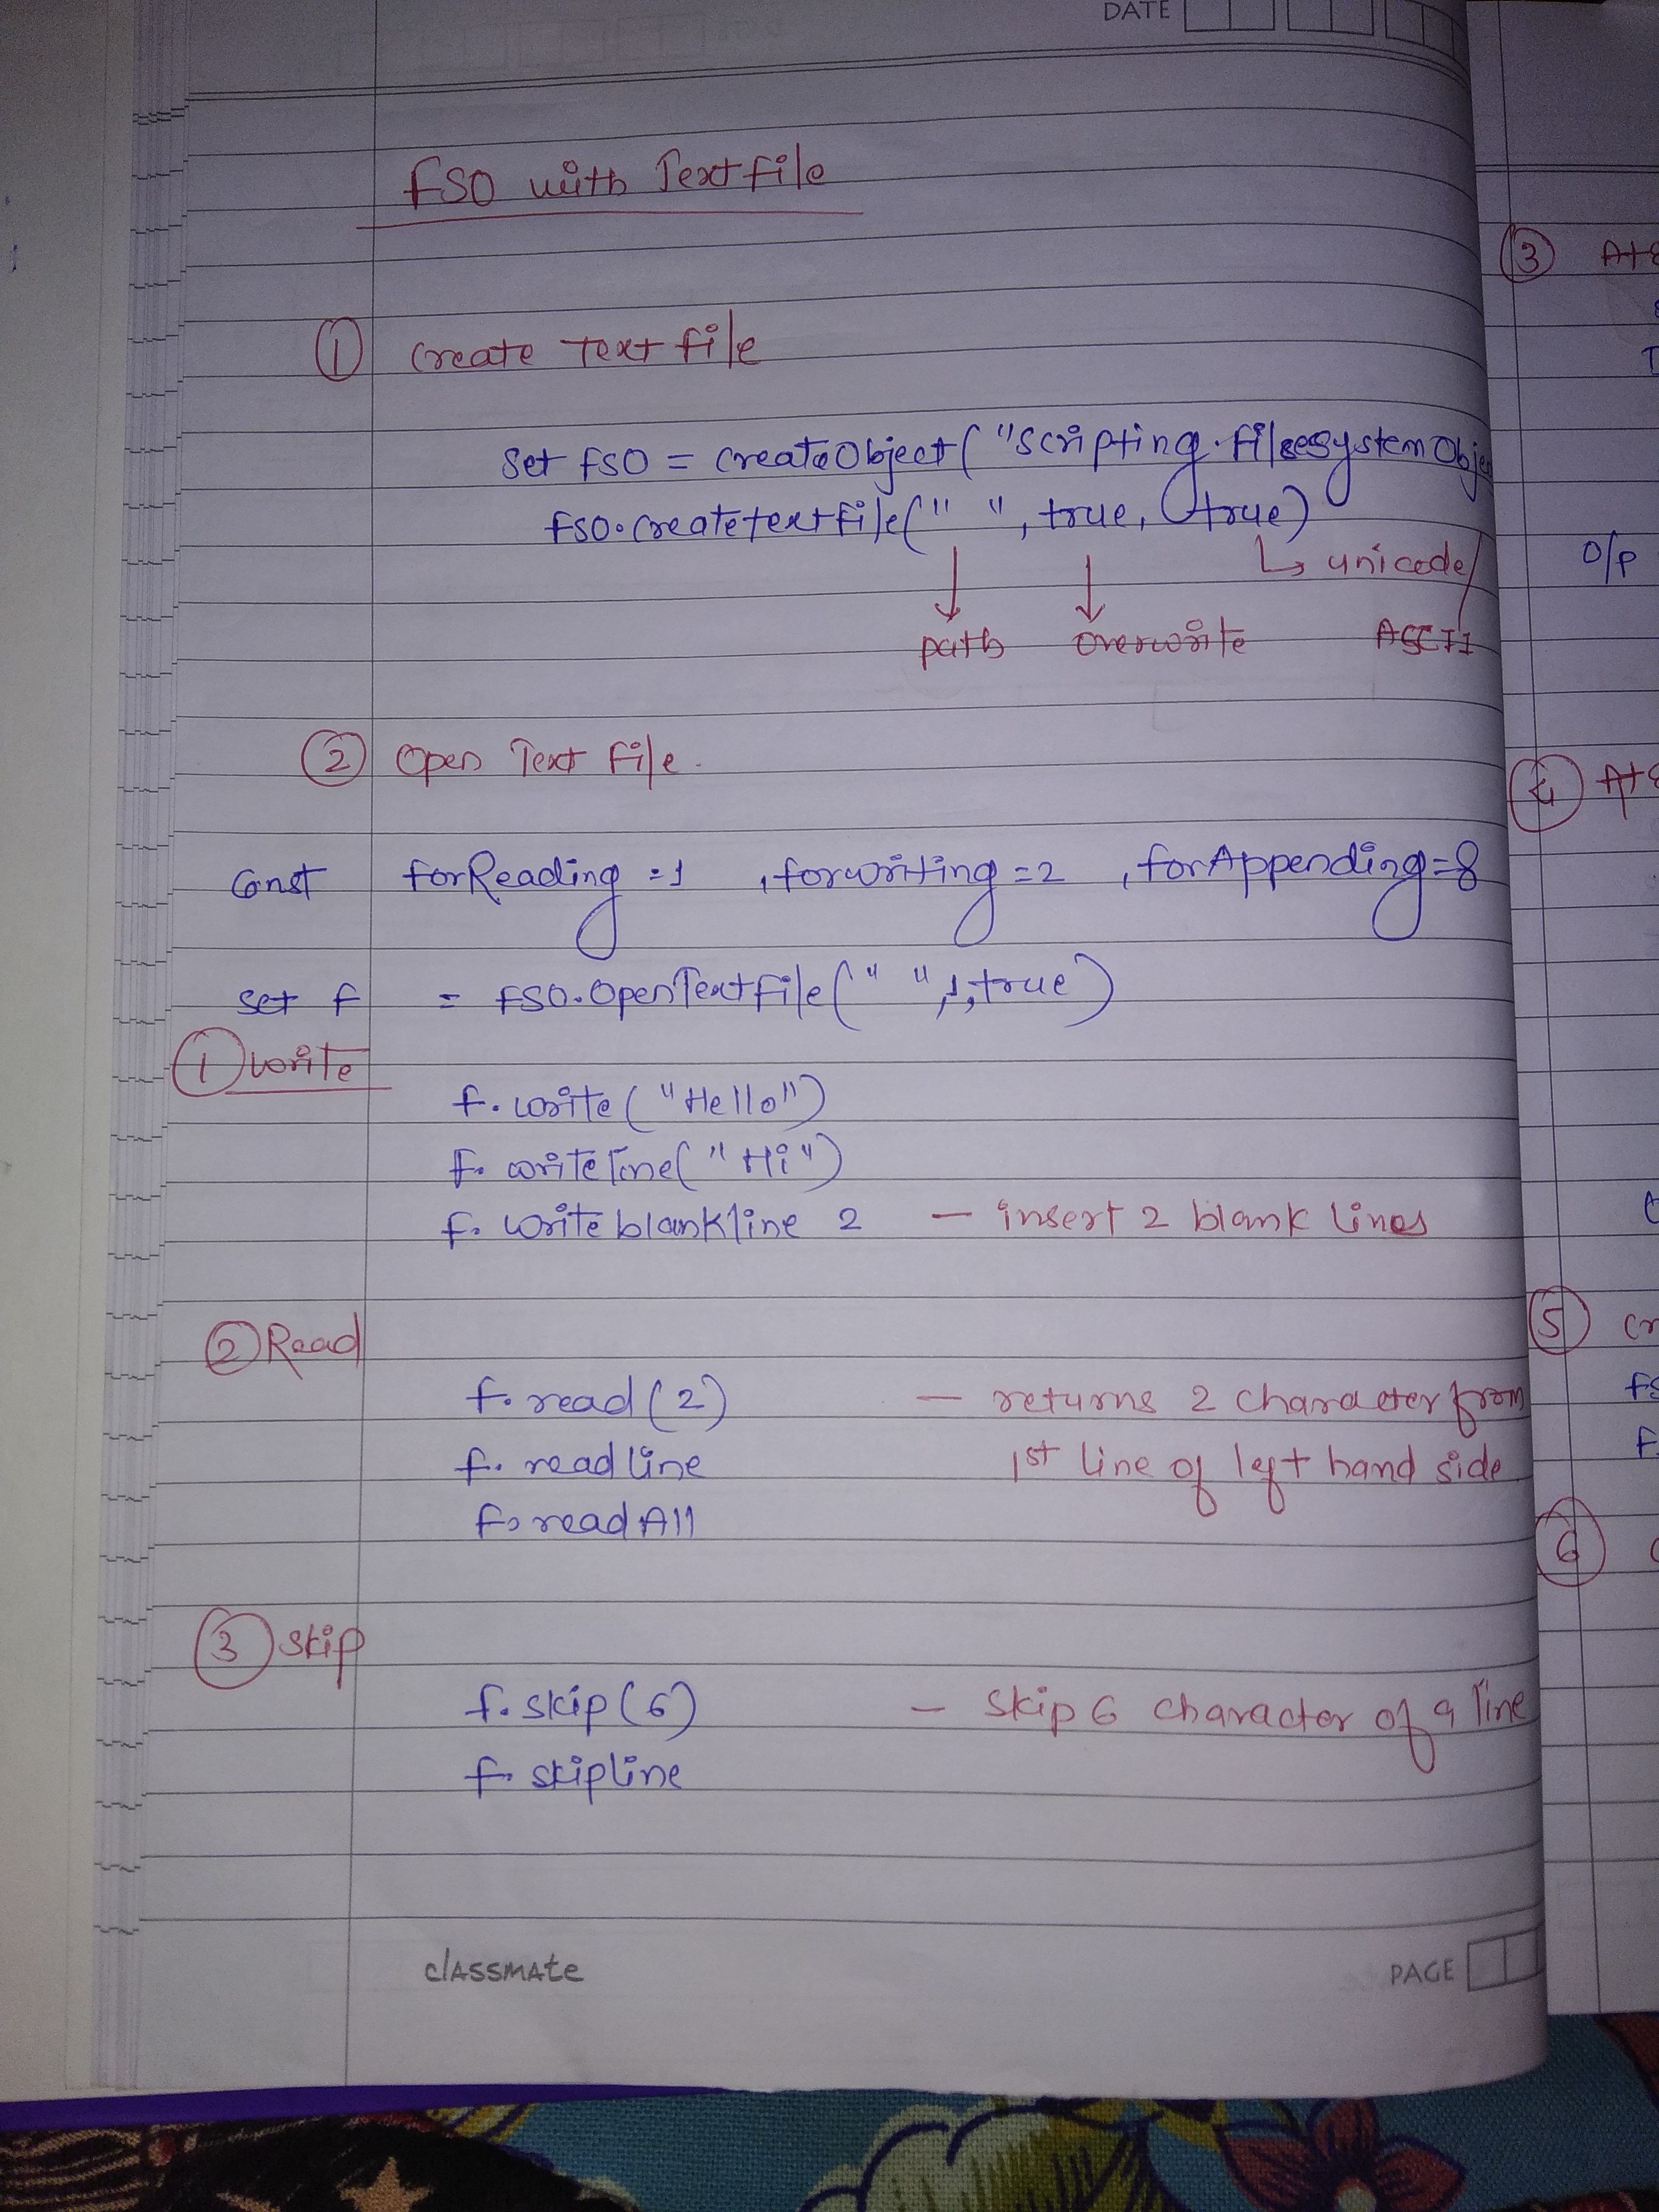 DATE
FSO with Textfile
① Create Text file
Set fso = CreateObject("Scripting.FilesesystemObje
fso.Createtextfile(" ", true, true)
↳ unicode/
path overwrite ASCII
② Open Text file.
Const forReading=1 ,forwriting=2 ,forAppending=8
set f = fso.OpenTextfile(" ",1,true)
① write
f.write("Hello")
f.writeline("Hi")
f.writeblankline 2 — insert 2 blank lines
② Read
f.read(2) — returns 2 character from
f.readline 1st line of left hand side
f.readAll
③ skip
f.skip(6) — skip 6 character of a line
f.skipline
classmate
PAGE
③
O/p
④
⑤
⑥